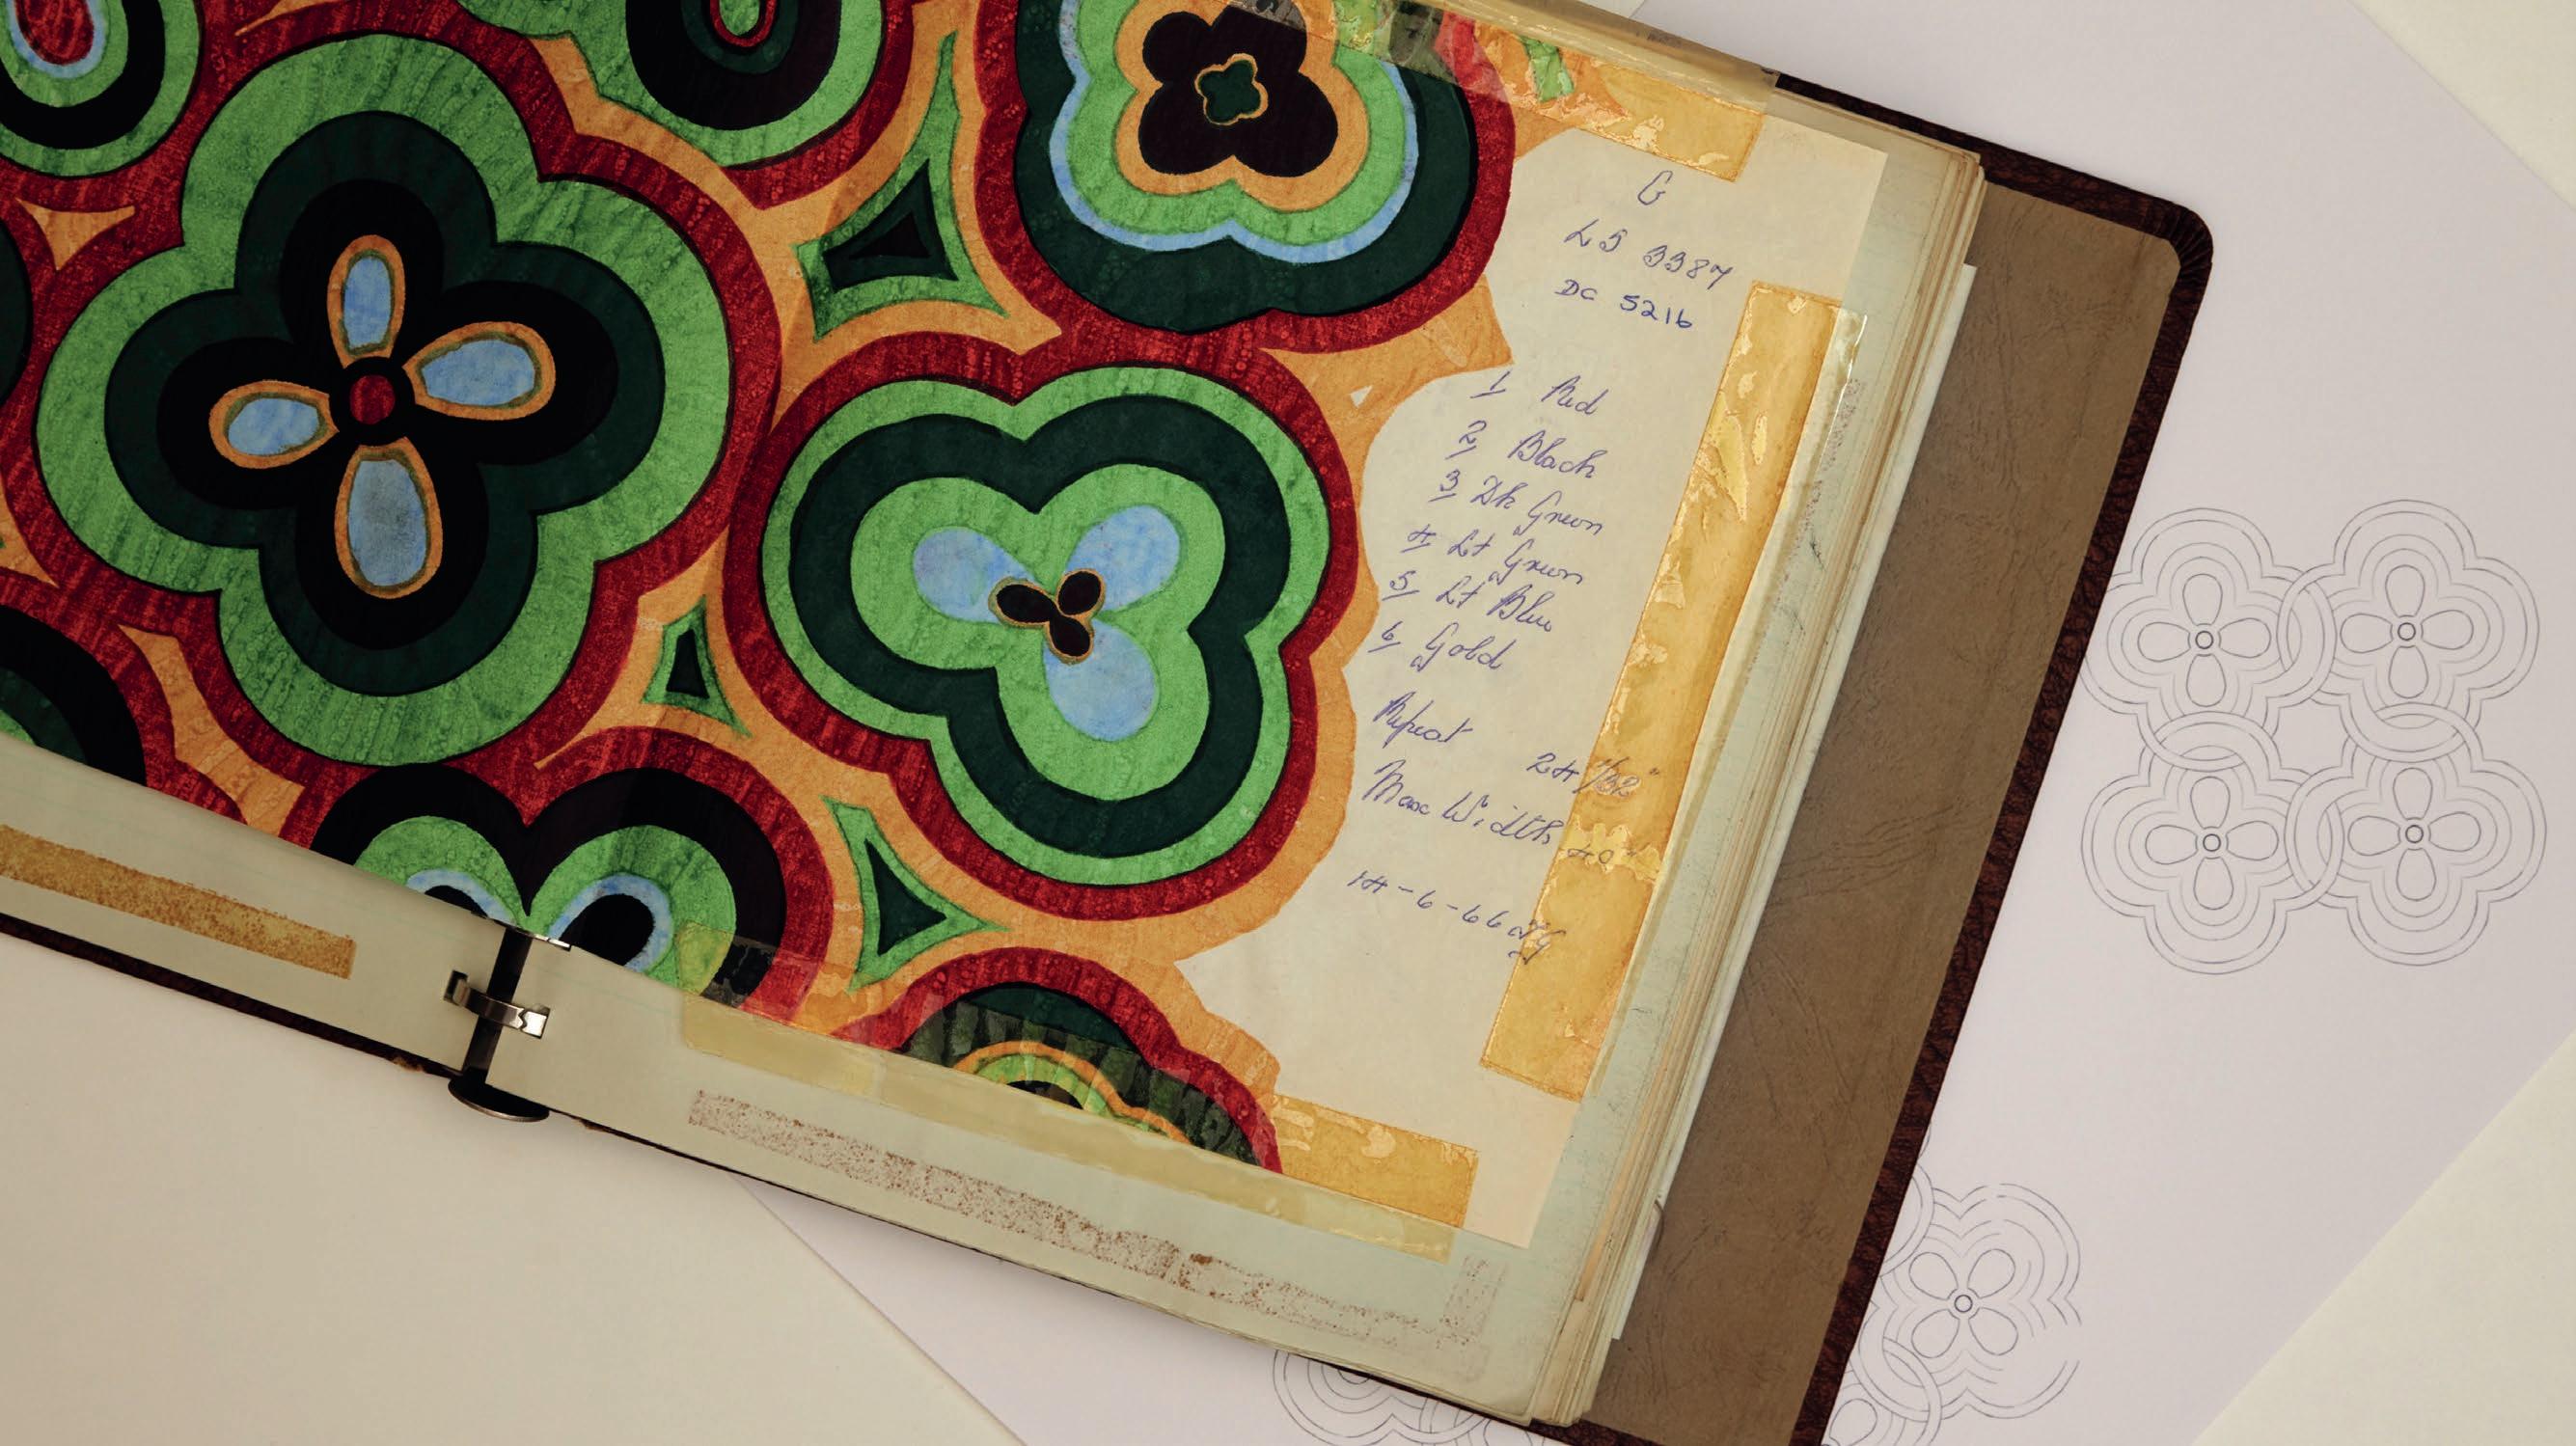 G
LS 3387
DC 5216
1 Red
2 Black
3 Dk Green
4 Lt Green
5 Lt Blue
6 Gold
Repeat 24 1/32"
Max Width 40"
14-6-66